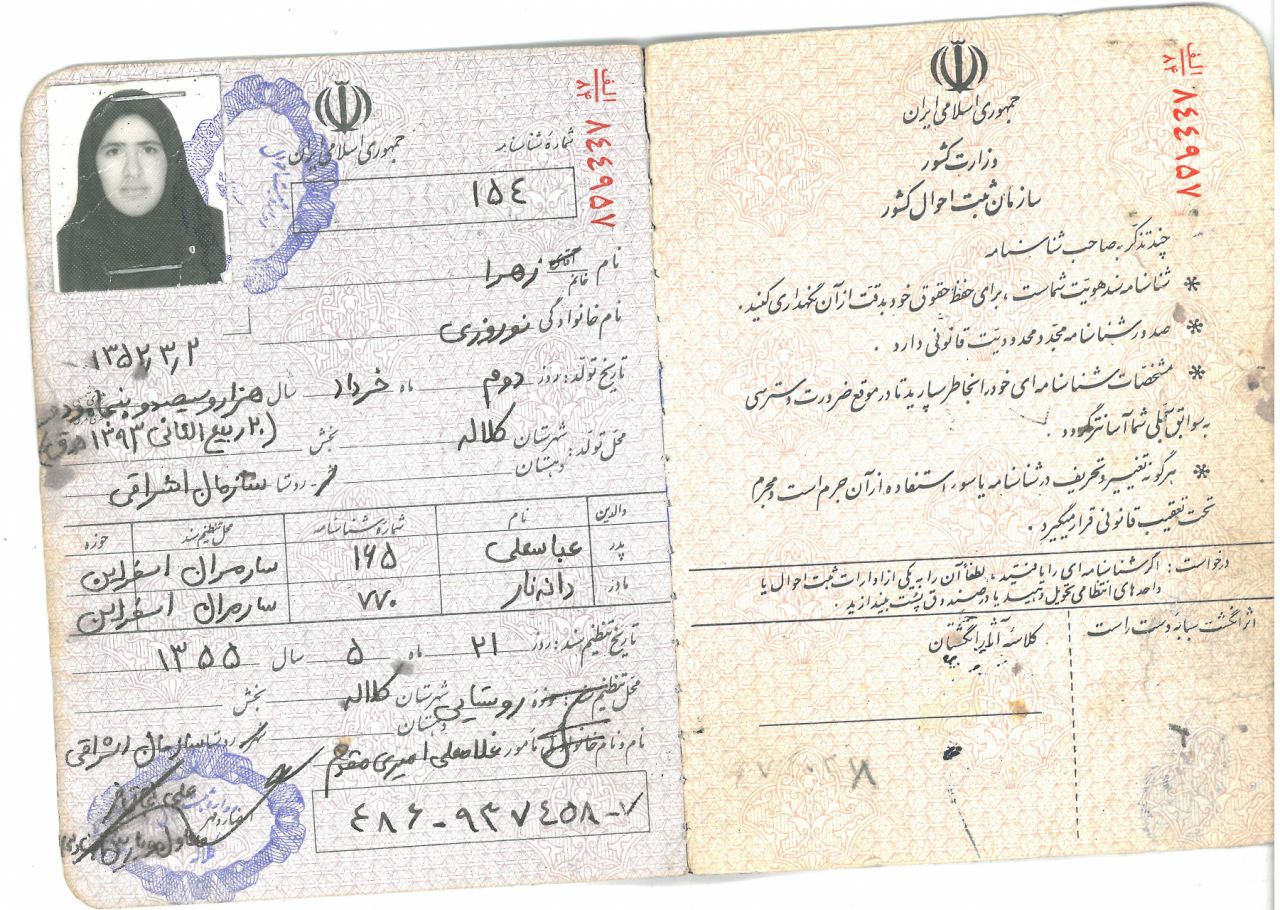 الف
۸۴
۸۴۴۹۵۷
جمهوری اسلامی ایران
وزارت کشور
سازمان ثبت احوال کشور
چند تذکر به صاحب شناسنامه
* شناسنامه سند هویت شماست، برای حفظ حقوق خود بدقت از آن نگهداری کنید.
* صدور شناسنامه مجدد محدودیت قانونی دارد.
* مشخصات شناسنامه‌ای خود را بخاطر بسپارید تا در موقع ضرورت دسترسی
به سوابق آبلی شما آسانتر گردد.
* هرگونه تغییر و تحریف در شناسنامه یا سوء استفاده از آن جرم است و مجرم
تحت تعقیب قانونی قرار میگیرد.
درخواست: اگر شناسنامه‌ای را یافتید، لطفاً آن را به یکی از ادارات ثبت احوال یا
واحدهای انتظامی تحویل دهید یا در صندوق پست بیندازید.
اثر انگشت سبابه دست راست
کلاسه آثار انگشتان
الف
۸۴
۸۴۴۹۵۷
جمهوری اسلامی ایران
شمارهٔ شناسنامه
۱۵۴
نام آقای خانم زهرا
نام خانوادگی نوروزی
۱۳۵۲٫۳٫۲
تاریخ تولد: روز دوم ماه خرداد سال هزار و سیصد و پنجاه و دو
(۲۰ ربیع الثانی ۱۳۹۳ ه ق)
محل تولد: شهرستان کلاله بخش
دهستان روستا سازمان اشراقی
والدین نام شمارهٔ شناسنامه محل تنظیم سند حوزه
پدر عباسعلی ۱۶۵ سارمران اسفراین
مادر دانه نار ۷۷۰ سارمران اسفراین
تاریخ تنظیم سند: روز ۲۱ ماه ۵ سال ۱۳۵۵
محل تنظیم سند: حوزه روستایی شهرستان کلاله بخش
دهستان روستا سازمان اشراقی
نام و نام خانوادگی مامور غلامعلی امیری مقدم
۴۸۶-۹۳۷۴۵۸-۷